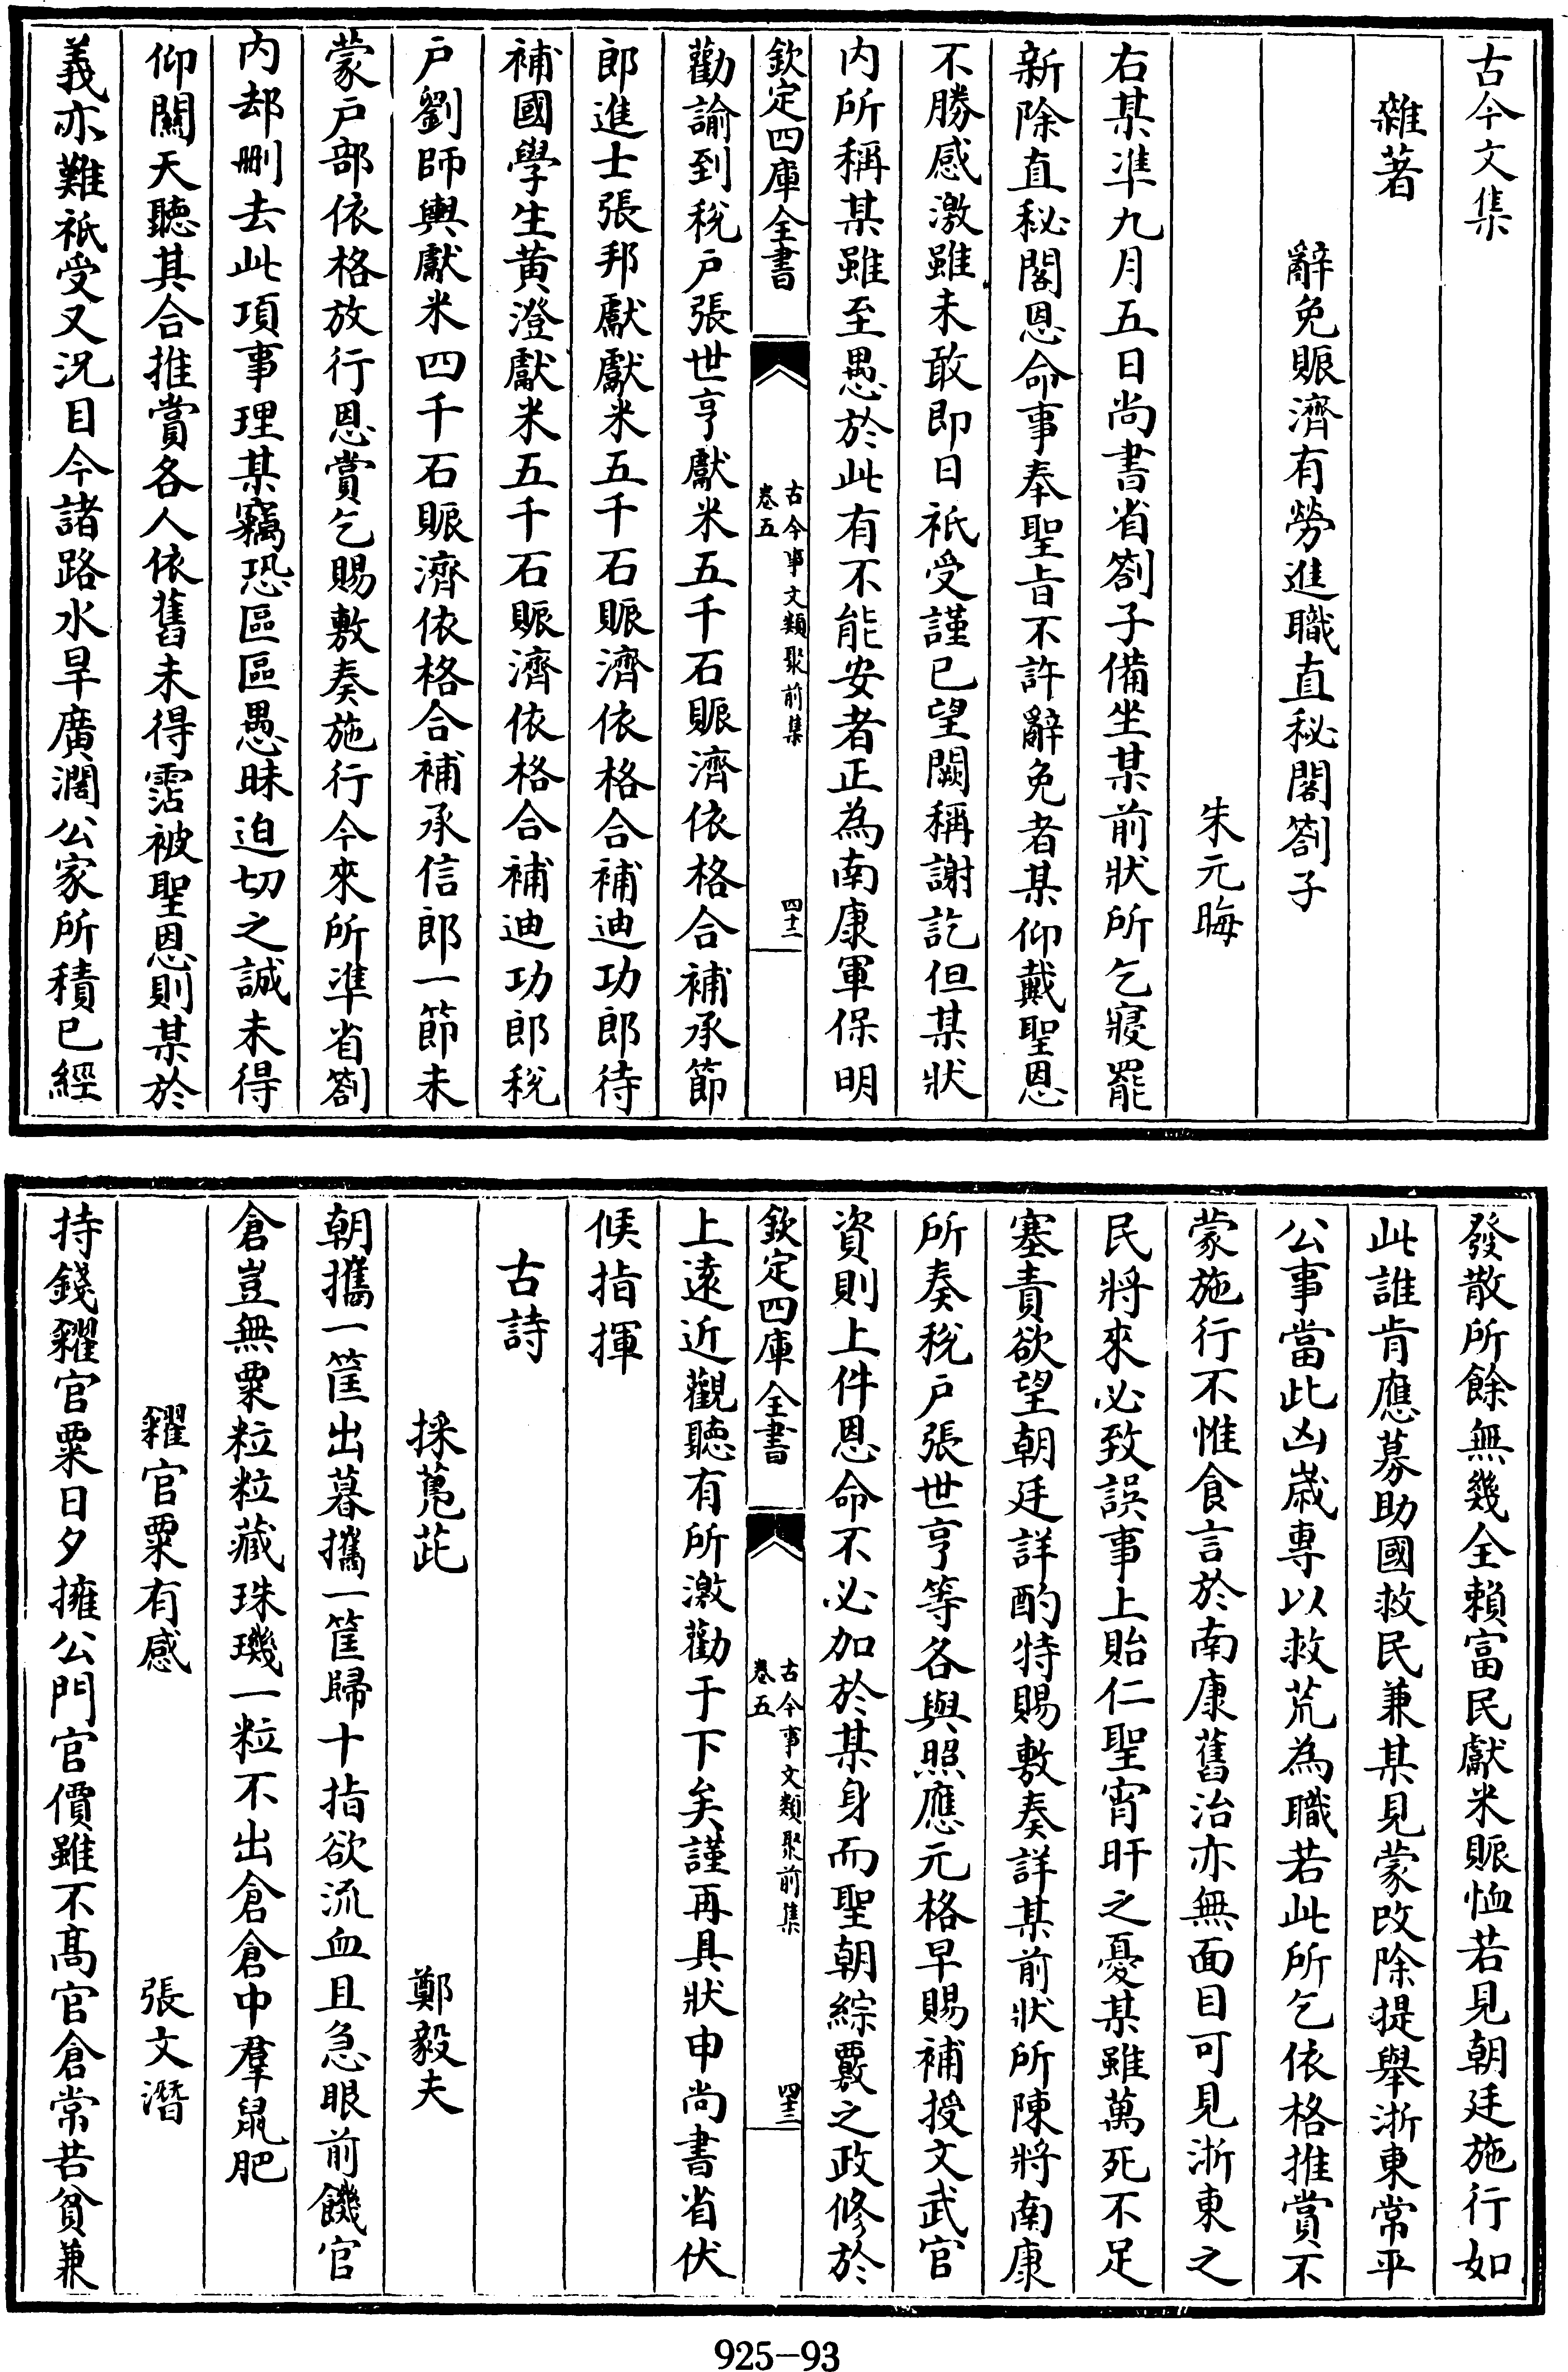 古今文集
雜著
辭免賑濟有勞進職直秘閣劄子
朱元晦
右某準九月五日尚書省劄子備坐某前狀所乞寢罷
新除直秘閣恩命事奉聖旨不許辭免者某仰戴聖恩
不勝感激雖未敢即日祇受謹已望闕稱謝訖但某狀
内所稱某雖至愚於此有不能安者正為南康軍保明
欽定四庫全書
古今事文類聚前集
卷五
四十二
勸諭到稅户張世亨獻米五千石賑濟依格合補承節
郎進士張邦獻獻米五千石賑濟依格合補迪功郎待
補國學生黄澄獻米五千石賑濟依格合補迪功郎稅
户劉師輿獻米四千石賑濟依格合補承信郎一節未
蒙户部依格放行恩賞乞賜敷奏施行今來所準省劄
内却刪去此項事理某竊恐區區愚昧迫切之誠未得
仰關天聽其合推賞各人依舊未得霑被聖恩則某於
義亦難祇受又況目今諸路水旱廣濶公家所積已經
發散所餘無幾全賴富民獻米賑恤若見朝廷施行如
此誰肯應募助國救民兼某見蒙改除提舉浙東常平
公事當此凶歲專以救荒為職若此所乞依格推賞不
蒙施行不惟食言於南康舊治亦無面目可見浙東之
民將來必致誤事上貽仁聖宵旰之憂某雖萬死不足
塞責欲望朝廷詳酌特賜敷奏詳某前狀所陳將南康
所奏稅户張世亨等各與照應元格早賜補授文武官
資則上件恩命不必加於某身而聖朝綜覈之政修於
欽定四庫全書
古今事文類聚前集
卷五
四十三
上逺近觀聽有所激勸于下矣謹再具狀申尚書省伏
候指揮
古詩
採鳬茈
鄭毅夫
朝攜一筐出暮攜一筐歸十指欲流血且急眼前饑官
倉豈無粟粒粒藏珠璣一粒不出倉倉中羣鼠肥
糴官粟有感
張文潛
持錢糴官粟日夕擁公門官價雖不髙官倉常苦貧兼
925-93